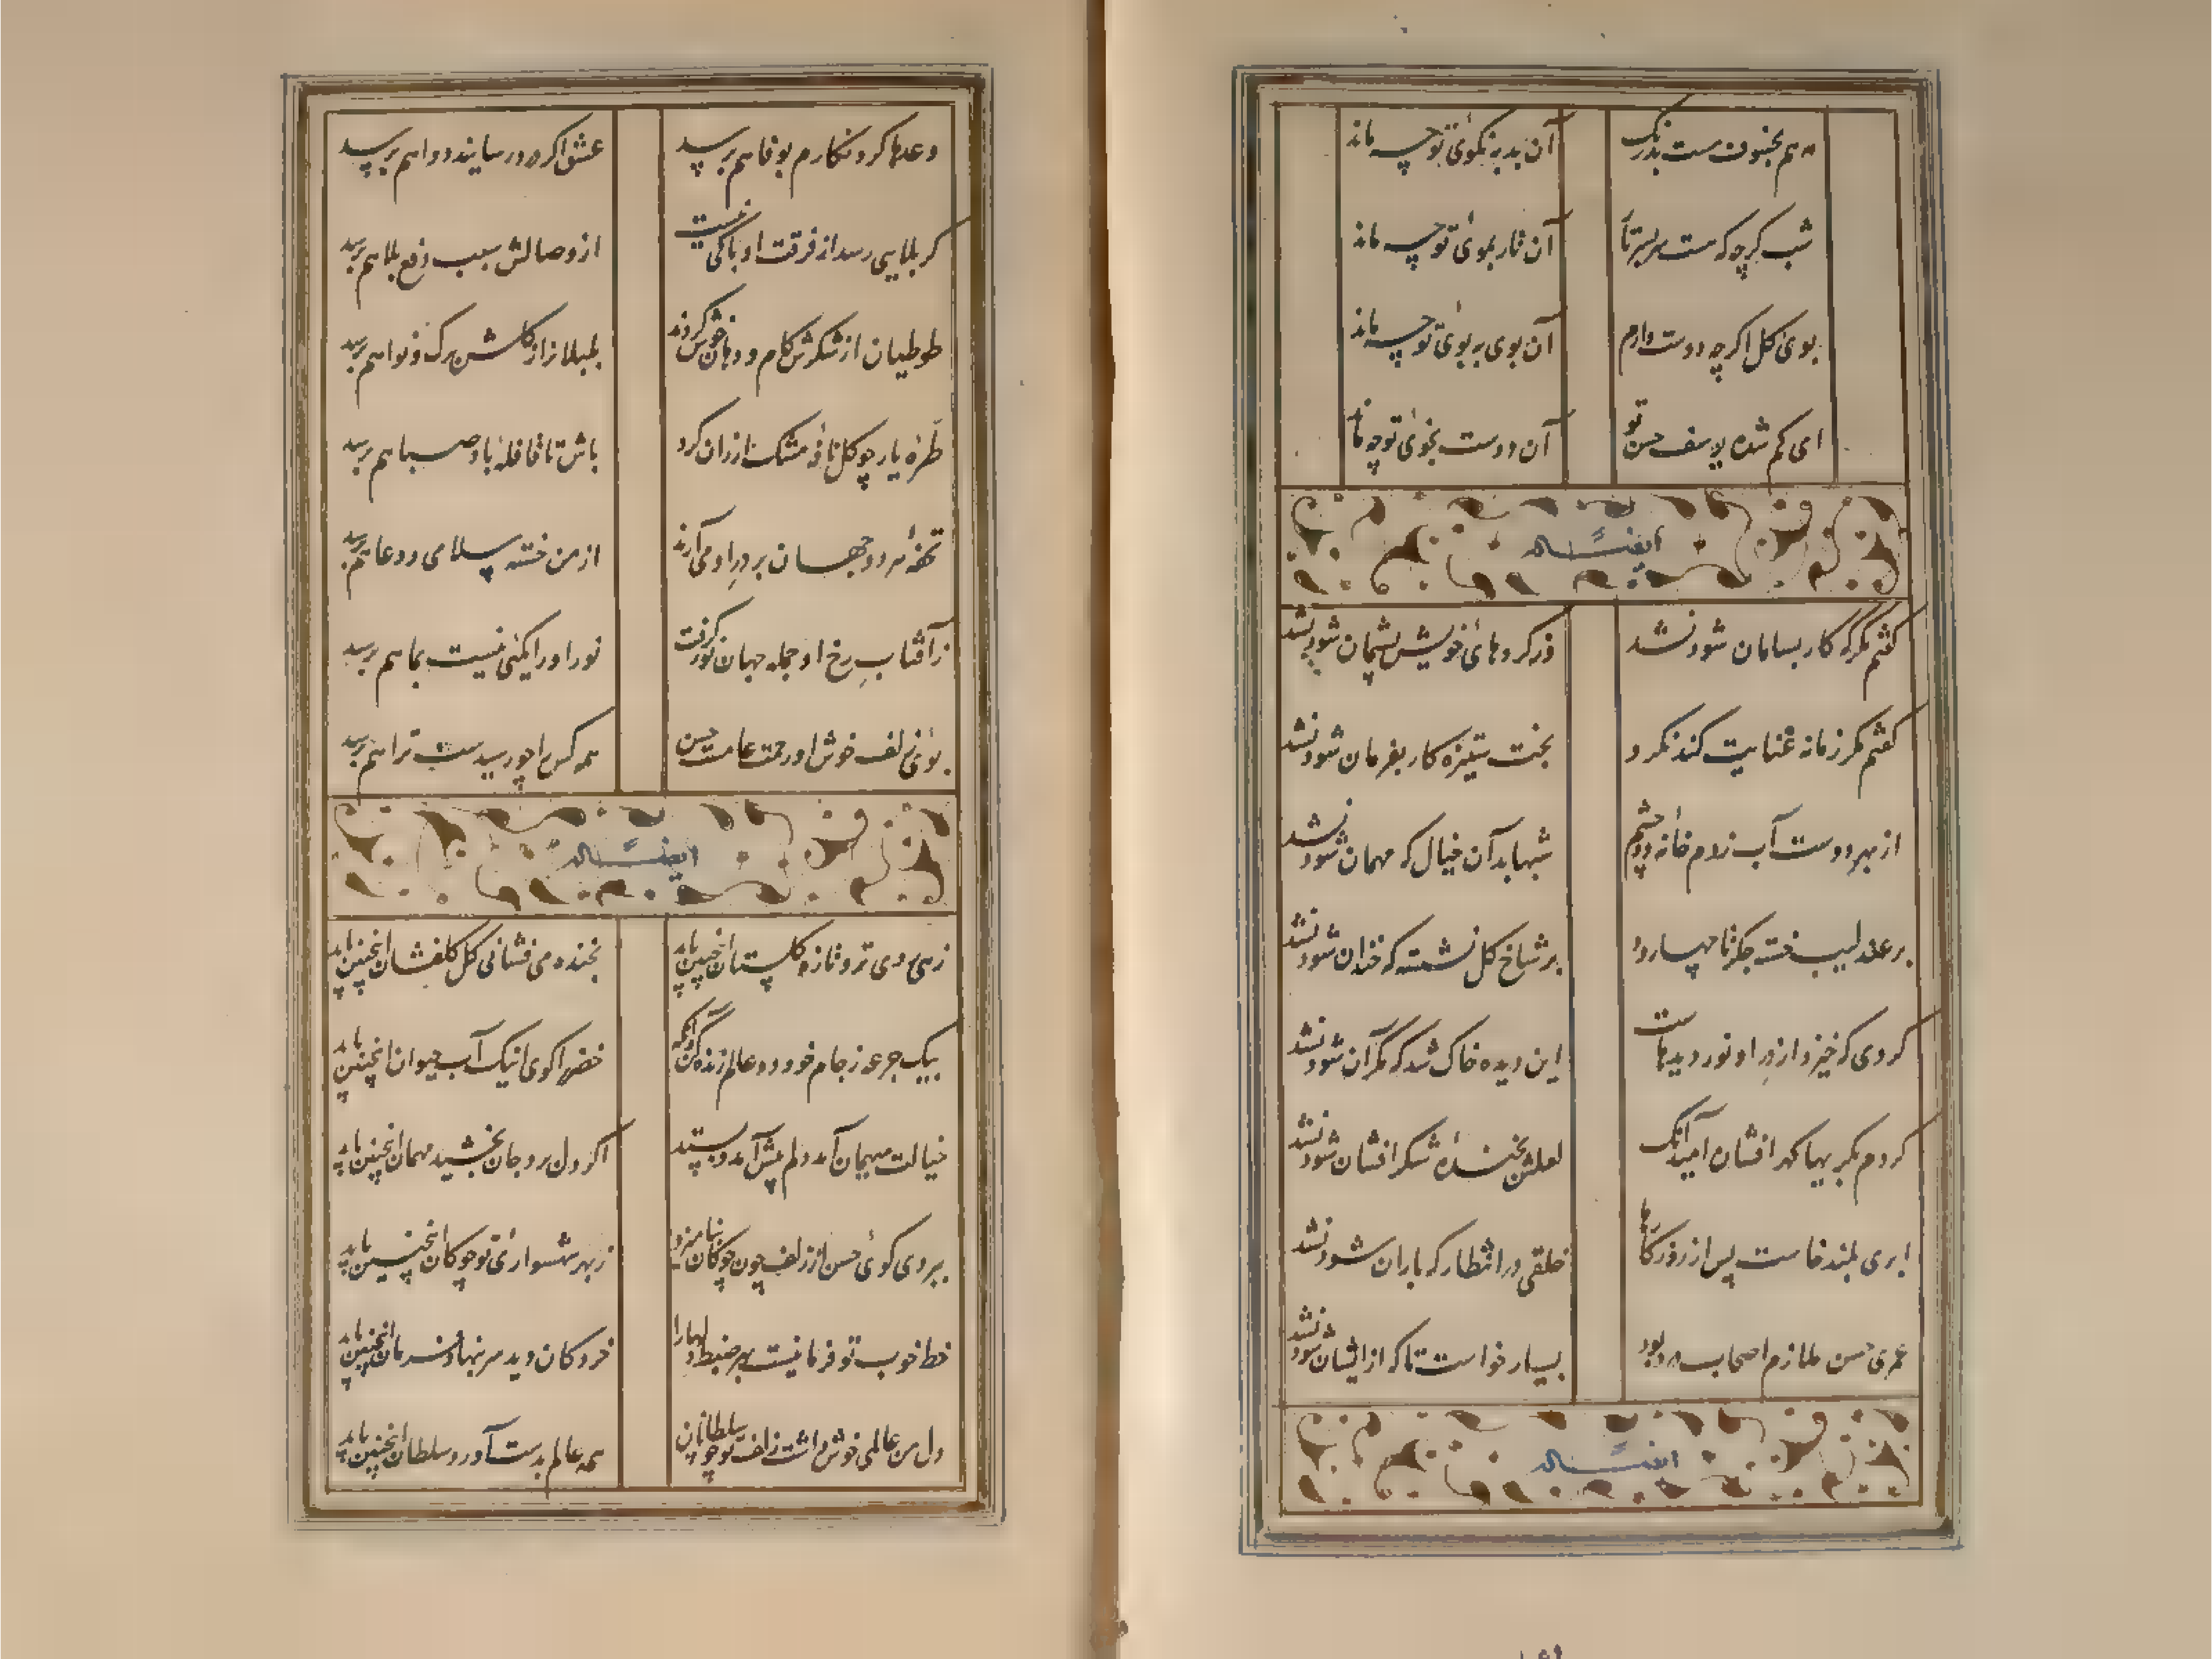 مه هم بخوبی ست بدرنگ آن بد به نکوئی تو چه ماند
شب گرچه که ست سربسر تار آن تار بموئی تو چه ماند
بوی گل اگرچه دوست دارم آن بوی ببوئی تو چه ماند
ای گم شده یوسف حسن تو آن دوست بخوئی تو چه ماند
ایضاً له
گفتم مگر که کار بسامان شود نشد وز کردهای خویش پشیمان شود نشد
گفتم مگر زمانه عنایت کند نکرد بخت ستیزه کار بفرمان شود نشد
از بهر دوست آب زدم خانه دو چشم شبها بد آن خیال که مهمان شود نشد
بر عندلیب خسته جگر تا چها رود بر شاخ گل نشسته که خندان شود نشد
گردی که خیزد از در او نور دیدهاست این دیده خاک شد که مگر آن شود نشد
کردم مگر بها گهر افشان امید آنک لعلش بخنده شکر افشان شود نشد
ابری بلند خاست پس از روزگارها خلقی در انتظار که باران شود نشد
عمری حسن ملازم اصحاب درد بود بسیار خواست تا که از ایشان شود نشد
ایضاً له
وعدها کرد نگارم بوفا هم برسد عشق اگر درد رسانید دوا هم برسد
گر بلایی رسد از فرقت او باکی نیست از وصالش سبب دفع بلا هم برسد
طوطیان از شکرش کام و دهان خوش کردند بلبلان را ز گلشن برگ و نوا هم برسد
طره یار چو گل نافه مشک ارزان کرد باش تا قافله باد صبا هم برسد
تحفه هر دو جهان بر در او می‌آرند از من خسته سلامی و دعا هم برسد
ز آفتاب رخ او جمله جهان نور گرفت نور او را کمئی نیست بما هم برسد
بوئی زلف خوش او رحمت عامست حسن همه کس را چو رسیدست ترا هم برسد
ایضاً له
زهی روی تر و تازه گلستان اینچنین باید بخنده می فشانی گل گلفشان اینچنین باید
بیک جرعه ز جام خود دو عالم زنده کن وانگه خضر را گوی اینک آب حیوان اینچنین باید
خیالت میهمان آمد دلم پیش آمد و بستد اگر دل برد جان بخشید مهمان اینچنین باید
ببردی گوئی حسن از زلف چون چوگان بنامیزد ز بهر شهسواری تو چوگان اینچنین باید
خط خوب تو فرمانیست بهر ضبط دلها را خرد کان دید سر بنهاد فرمان اینچنین باید
دل من عالمی خوش داشت زلفت تو چو سلطانان همه عالم بدست آورد سلطان اینچنین باید